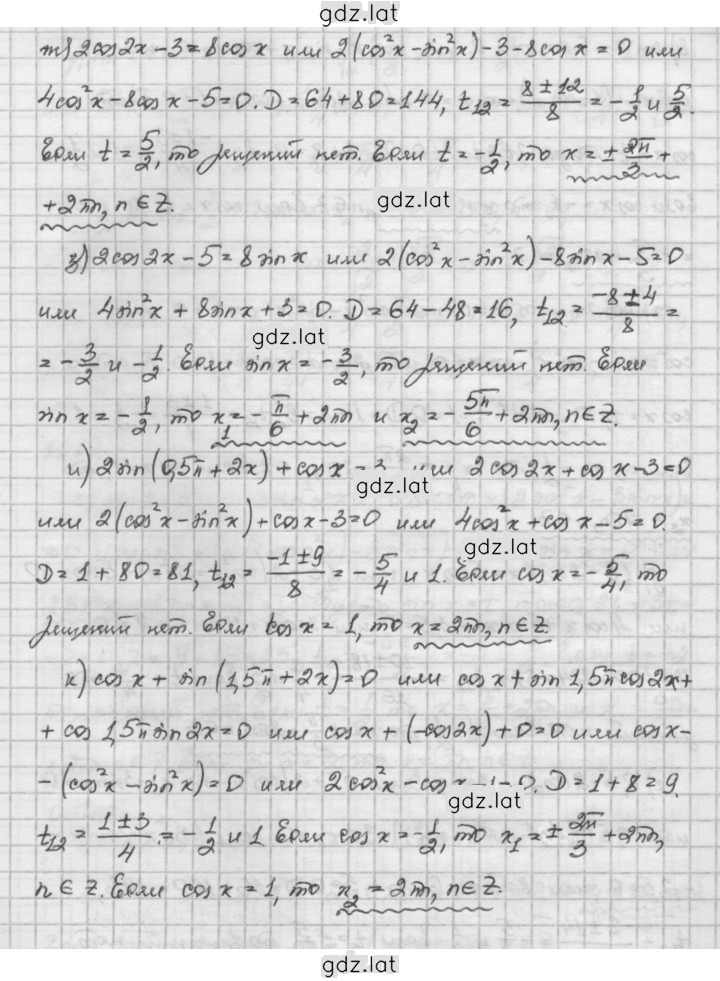 gdz.lat
ж) 2cos2x − 3 = 8cos x или 2(cos²x − sin²x) − 3 − 8cos x = 0 или
4cos²x − 8cos x − 5 = 0. D = 64 + 80 = 144, t₁₂ = (8 ± 12)/8 = −1/2 и 5/2.
Если t = 5/2, то решений нет. Если t = −1/2, то x = ± 2π/3 +
gdz.lat
+ 2πn, n ∈ Z.
з) 2cos2x − 5 = 8sin x или 2(cos²x − sin²x) − 8sin x − 5 = 0
или 4sin²x + 8sin x + 3 = 0. D = 64 − 48 = 16, t₁₂ = (−8 ± 4)/8 =
gdz.lat
= −3/2 и −1/2. Если sin x = −3/2, то решений нет. Если
sin x = −1/2, то x₁ = −π/6 + 2πn и x₂ = −5π/6 + 2πn, n ∈ Z.
и) 2sin(0,5π + 2x) + cos x 2cos2x + cos x − 3 = 0
gdz.lat
или 2(cos²x − sin²x) + cos x − 3 = 0 или 4cos²x + cos x − 5 = 0.
gdz.lat
D = 1 + 80 = 81, t₁₂ = (−1 ± 9)/8 = −5/4 и 1. Если cos x = −5/4, то
решений нет. Если cos x = 1, то x = 2πn, n ∈ Z.
к) cos x + sin(1,5π + 2x) = 0 или cos x + sin 1,5π cos2x +
+ cos 1,5π sin 2x = 0 или cos x + (−cos2x) + 0 = 0 или cos x −
− (cos²x − sin²x) = 0 или 2cos²x − cos x D = 1 + 8 = 9.
gdz.lat
t₁₂ = (1 ± 3)/4 = −1/2 и 1. Если cos x = −1/2, то x₁ = ± 2π/3 + 2πn,
n ∈ Z. Если cos x = 1, то x₂ = 2πn, n ∈ Z.
gdz.lat